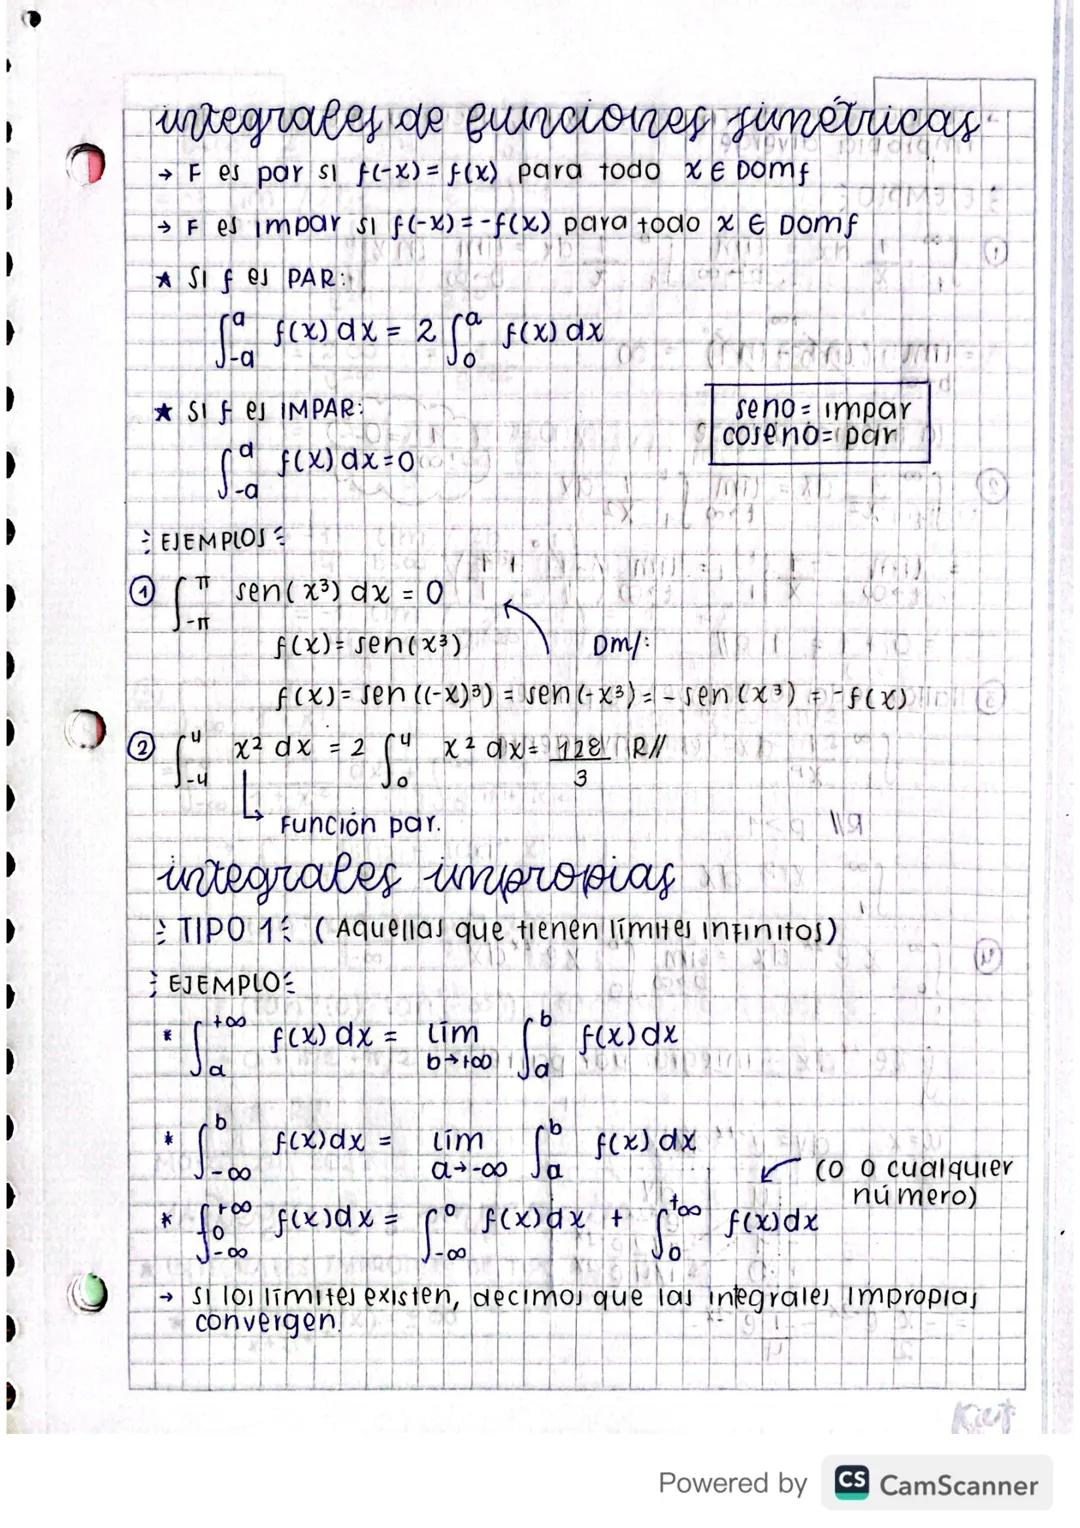 integrales de funciones simétricas
→ F es par si f(-x) = f(x) para todo x ∈ Domf
→ F es impar si f(-x) = -f(x) para todo x ∈ Domf
★ Si f es PAR:
∫_{-a}^{a} f(x) dx = 2 ∫_{0}^{a} f(x) dx
★ Si f es IMPAR:
∫_{-a}^{a} f(x) dx = 0
seno = impar
coseno = par
EJEMPLOS
① ∫_{-π}^{π} sen(x³) dx = 0
f(x) = sen(x³) Dm/:
f(x) = sen((-x)³) = sen(-x³) = -sen(x³) = -f(x)
② ∫_{-4}^{4} x² dx = 2 ∫_{0}^{4} x² dx = 128/3 R//
Función par.
integrales impropias
TIPO 1 (Aquellas que tienen límites infinitos)
EJEMPLO
* ∫_{a}^{+∞} f(x) dx = lím_{b→+∞} ∫_{a}^{b} f(x) dx
* ∫_{-∞}^{b} f(x) dx = lím_{a→-∞} ∫_{a}^{b} f(x) dx
(0 o cualquier
número)
* ∫_{-∞}^{+∞} f(x) dx = ∫_{-∞}^{0} f(x) dx + ∫_{0}^{+∞} f(x) dx
→ Si los límites existen, decimos que las integrales impropias
convergen.
Powered by CS CamScanner